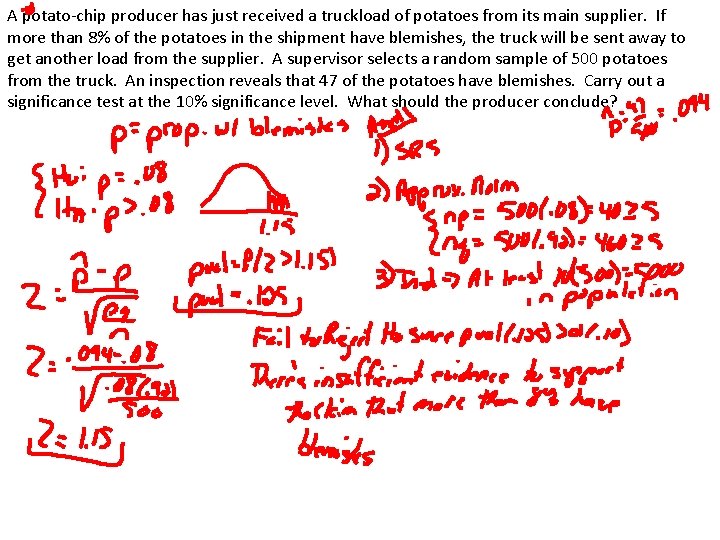 A potato-chip producer has just received a truckload of potatoes from its main supplier. If
more than 8% of the potatoes in the shipment have blemishes, the truck will be sent away to
get another load from the supplier. A supervisor selects a random sample of 500 potatoes
from the truck. An inspection reveals that 47 of the potatoes have blemishes. Carry out a
significance test at the 10% significance level. What should the producer conclude?
p̂ = 47/500 = .094
p = prop. w/ blemishes
1) SRS
H₀: p = .08
Hₐ: p > .08
1.15
2) Approx. Norm
np = 500(.08) = 40 ≥ 5
nq = 500(.92) = 460 ≥ 5
3) Ind → At least 10(500) = 5000
in population
z = p̂ - p / √(pq/n)
pval = P(z > 1.15)
pval = .125
z = .094 - .08 / √(.08(.92)/500)
z = 1.15
Fail to Reject H₀ since pval (.125) > α (.10)
There's insufficient evidence to support
the claim that more than 8% have
blemishes